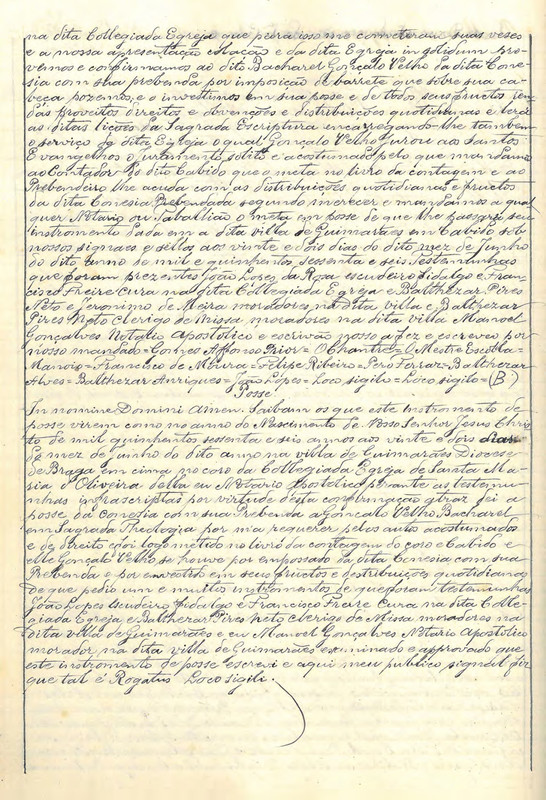 na dita Collegiada Egreja que pera isso me cometeram suas vezes
e a nossa apresentação collação e da dita Egreja in solidum pro-
vemos e confirmamos ao dito Bacharel Gonçalo Velho da dita Cone-
sia com sua prebenda por imposição de barrete que sobre sua ca-
beça pozemos, e o investimos em sua posse e de todos seus fructos ren-
das proveitos direitos e obvenções e distribuições quotidianas e lerá
as ditas lições da Sagrada Escriptura encarregando-lhe tambem
o serviço da dita Egreja o qual Gonçalo Velho jurou aos Santos
Evangelhos o juramento solito e acostumado pelo que mandamos
ao Contador do dito Cabido que o meta no livro da contagem e ao
Prebendeiro lhe acuda com as distribuições quotidianas e fructos
da dita Conesia Prebendada segundo merecer e mandamos a qual
quer Notario ou Taballião o meta em posse de que lhe passará seu
instrumento dada em a dita villa de Guimarães em Cabido sob
nossos signaes e sellos aos vinte e dois dias do dito mez de Junho
do dito anno de mil e quinhentos sessenta e seis Testemunhas
que foram prezentes João Lopes da Rosa escudeiro fidalgo e Fran-
cisco Freire Cura na dita Collegiada Egreja e Balthezar Peres
Neto e Jeronimo de Meira moradores na dita villa e Balthezar
Pires Neto clerigo de Missa moradores na dita villa Manoel
Gonçalves Notario Apostolico e escrivão nosso a fez e escreveu por
nosso mandado = Gomes Affonso Prior = O Chantre = O Mestre Escolla =
Manoio = Francisco de Moura = Felipe Ribeiro = Pero Ferraz = Balthezar
Alves = Balthezar Anriques = João Lopes = Loco sigili = Loco sigilo = (B)
Posse
In nomine Domini Amen. Saibam os que este instromento de
posse virem como no anno do Nascimento de Nosso Senhor Jesus Chris
to de mil quinhentos sessenta e seis annos aos vinte e dois dias
de mez de junho do dito anno na villa de Guimarães Diocese
de Braga em cima no coro da Collegiada Egreja de Santa Ma-
ria d'Oliveira della eu Notario Apostolico perante as testemu-
nhas infrascriptas por virtude desta confirmação atraz dei a
posse da conesia com sua Prebenda a Gonçalo Velho, Bacharel
em Sagrada Theologia por m'a requerer pelos autos acostumados
e de direito e foi logo metido no livro da contagem do coro e Cabido e
elle Gonçalo Velho se houve por empossado da dita Conesia com sua
Prebenda e por envestido em seus fructos e destribuições quotidianas
de que pedio um e muitos instromentos de que foram testemunhas
João Lopes Escudeiro Fidalgo e Francisco Freire Cura na dita Colle-
giada Egreja e Balthezar Pires Neto clerigo de Missa moradores na
dita villa de Guimarães e eu Manoel Gonçalves Notario Apostolico
morador na dita villa de Guimarães examinado e approvado que
este instromento de posse escrevi e aqui meu publico signal fiz
que tal é Rogatus Loco sigili.